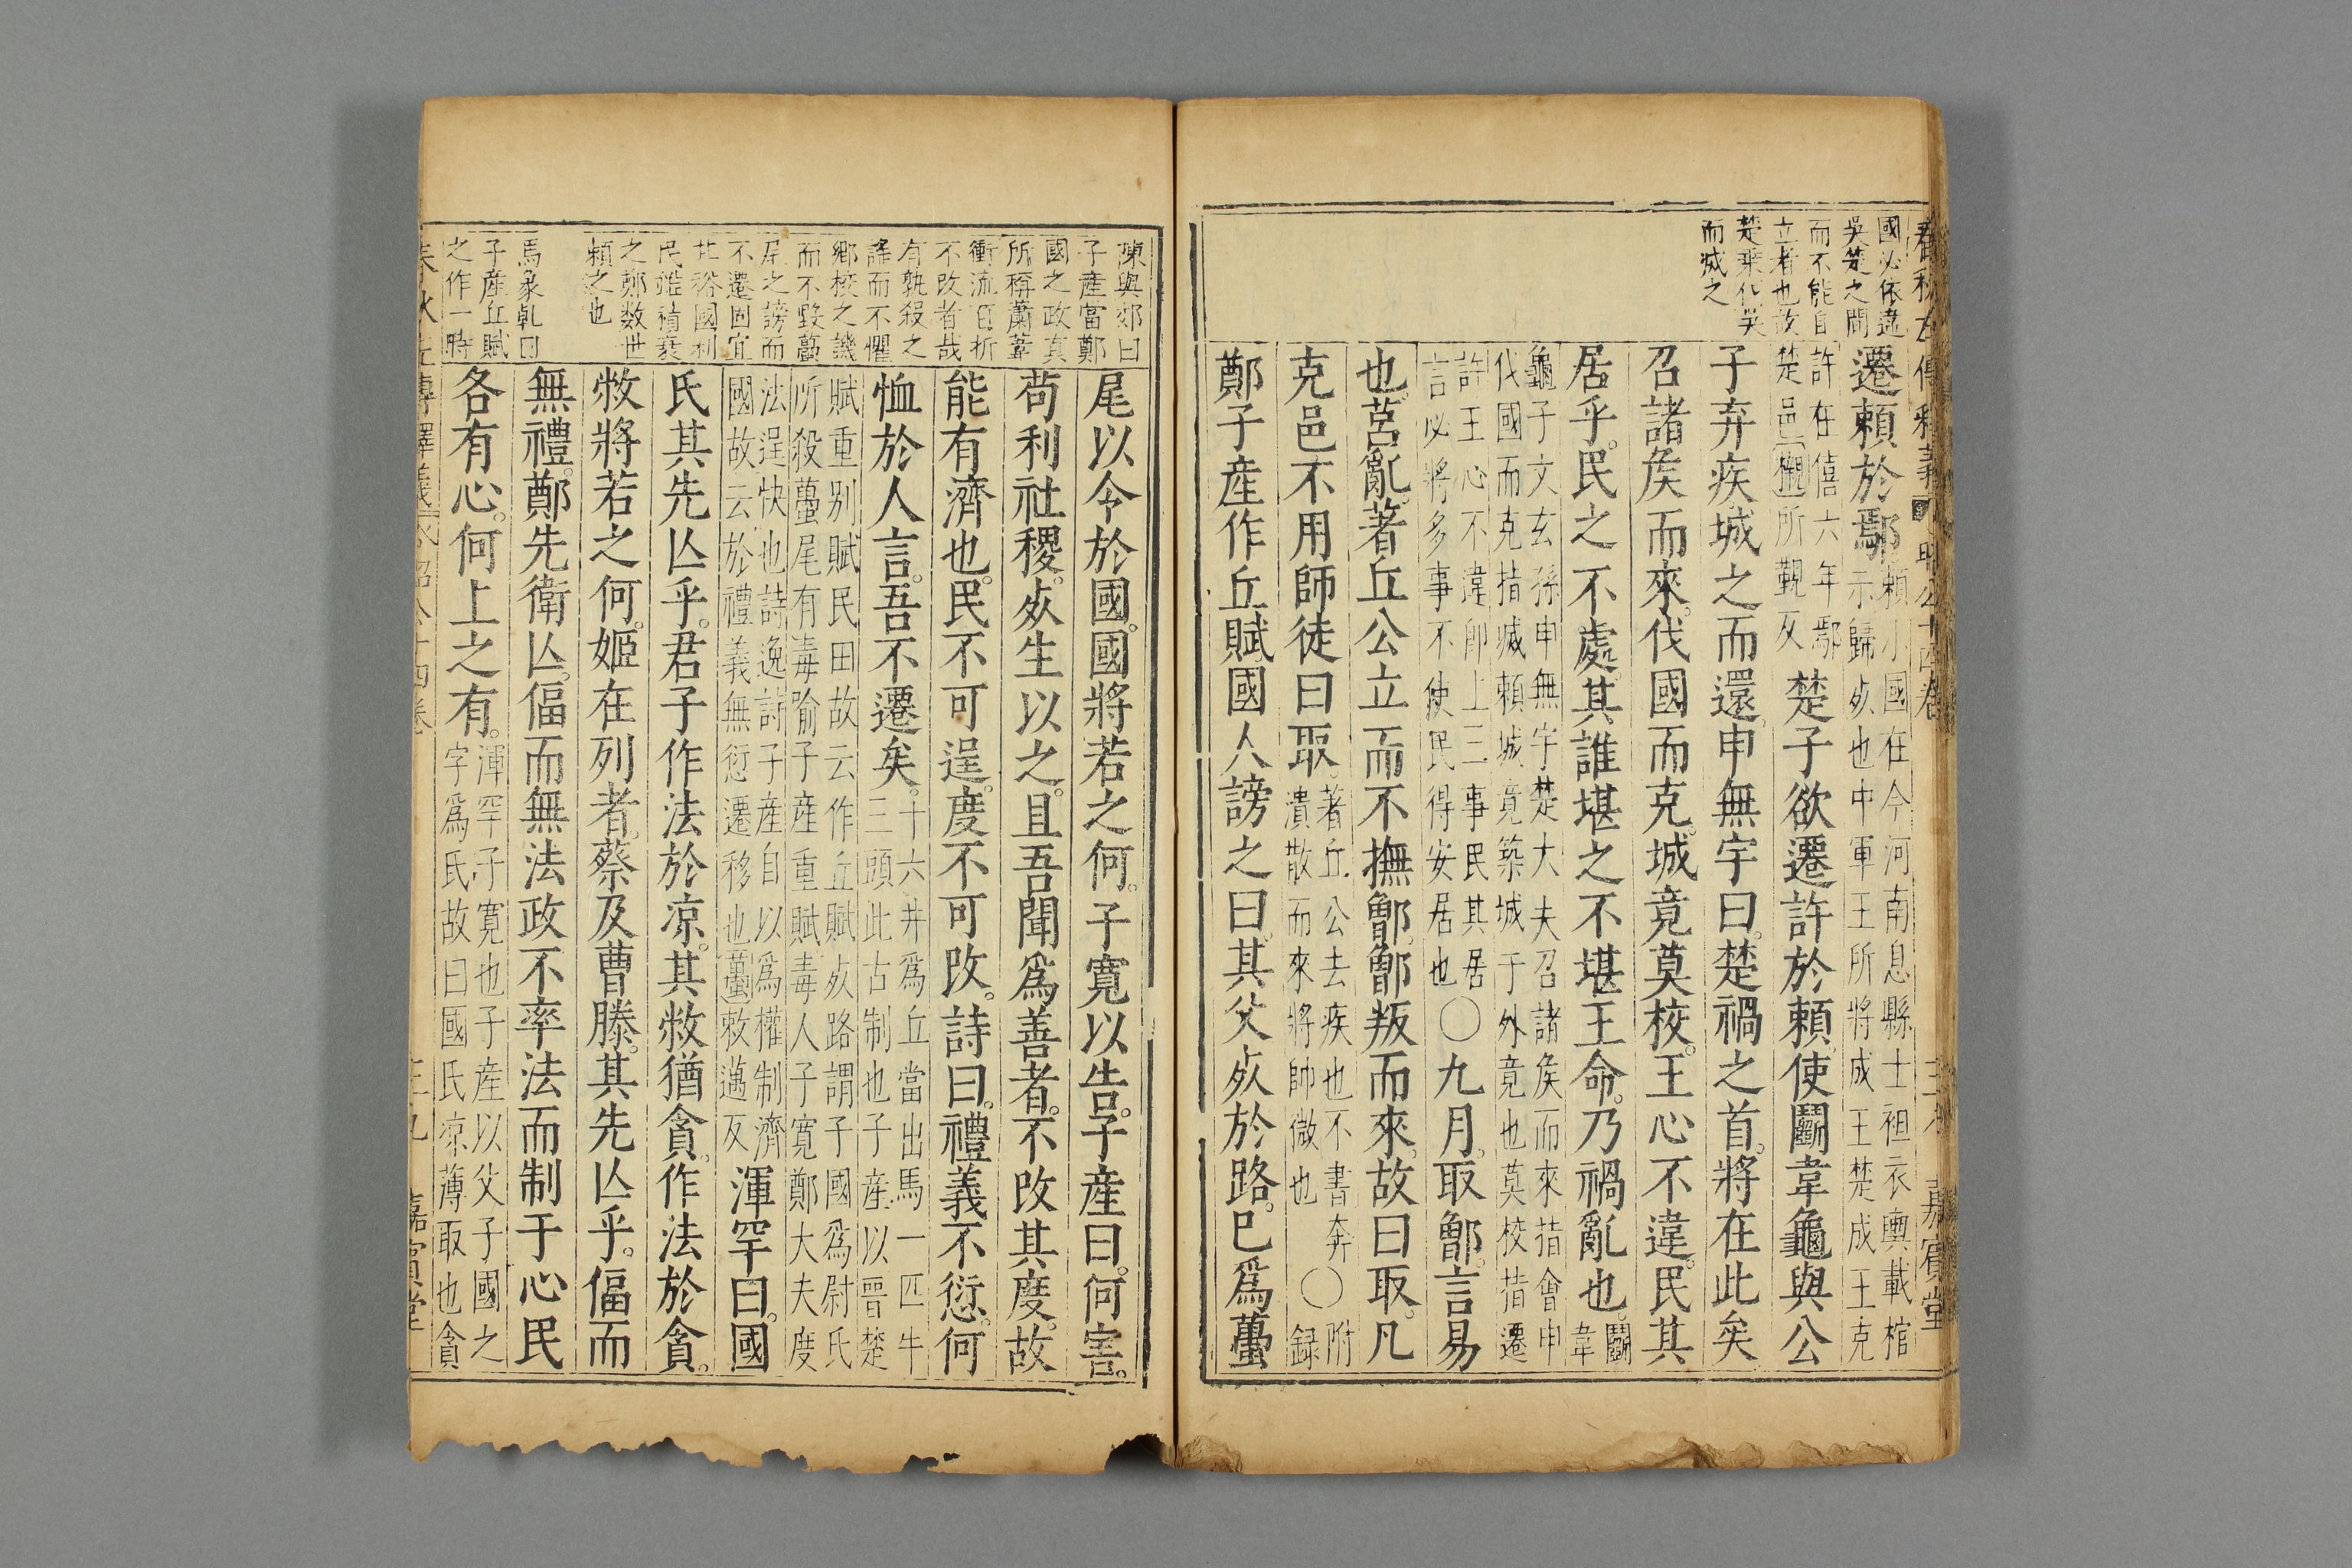 國必依違
吳楚之間
而不能自
立者也故
楚乘伐吳
而滅之
遷賴於鄢賴小國在今河南息縣士袒衣輿載棺
示歸死也中軍王所將成王楚成王克
許在僖六年鄢
楚邑櫬所覲反楚子欲遷許於賴使鬬韋龜與公
子弃疾城之而還申無宇曰楚禍之首將在此矣
召諸矦而來伐國而克城竟莫校王心不違民其
居乎民之不處其誰堪之不堪王命乃禍亂也鬬
韋
龜子文玄孫申無宇楚大夫召諸矦而來指會申
伐國而克指滅賴城竟築城于外竟也莫校指遷
許王心不違卽上三事民其居
言必將多事不使民得安居也○九月取鄫言易
也莒亂著丘公立而不撫鄫鄫叛而來故曰取凡
克邑不用師徒曰取著丘公去疾也不書奔
潰散而來將帥微也○附
錄
鄭子產作丘賦國人謗之曰其父死於路巳爲蠆
陳與郊曰
子產當鄭
國之政真
所稱蕭葦
衝流百折
不改者哉
有孰殺之
謠而不懼
鄉校之譏
而不毀蠆
尾之謗而
不遷固宜
其裕國利
民雖積衰
之鄭数世
賴之也
馬彖乹曰
子產丘賦
之作一時
尾以令於國國將若之何子寬以告子產曰何害
苟利社稷死生以之且吾聞爲善者不改其度故
能有濟也民不可逞度不可改詩曰禮義不愆何
恤於人言吾不遷矣十六井爲丘當出馬一匹牛
三頭此古制也子產以晉楚
賦重别賦民田故云作丘賦死路謂子國爲尉氏
所殺蠆尾有毒喻子產重賦毒人子寬鄭大夫度
法逞快也詩逸詩子產自以爲權制濟
國故云於禮義無愆遷移也蠆敕邁反渾罕曰國
氏其先亾乎君子作法於凉其敝猶貪作法於貪
敝將若之何姬在列者蔡及曹滕其先亾乎偪而
無禮鄭先衛亾偪而無法政不率法而制于心民
各有心何上之有渾罕子寬也子產以父子國之
字爲氏故曰國氏凉薄取也貪